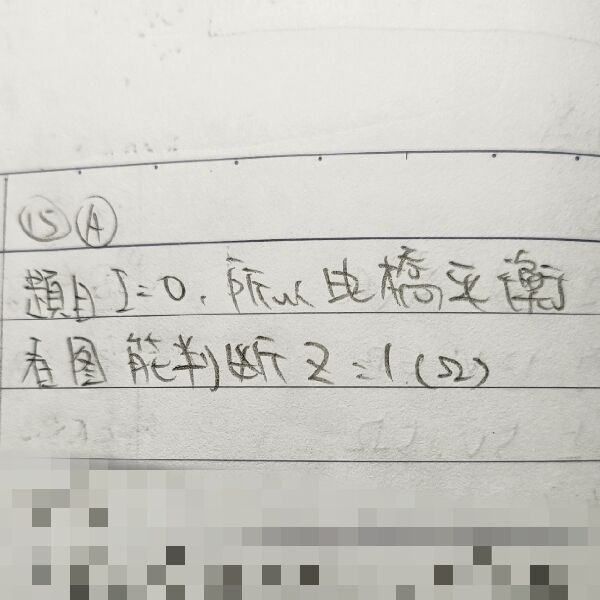 ⑮Ⓐ
題目I=0,所以电橋平衡
看图能判断Z=1(Ω)